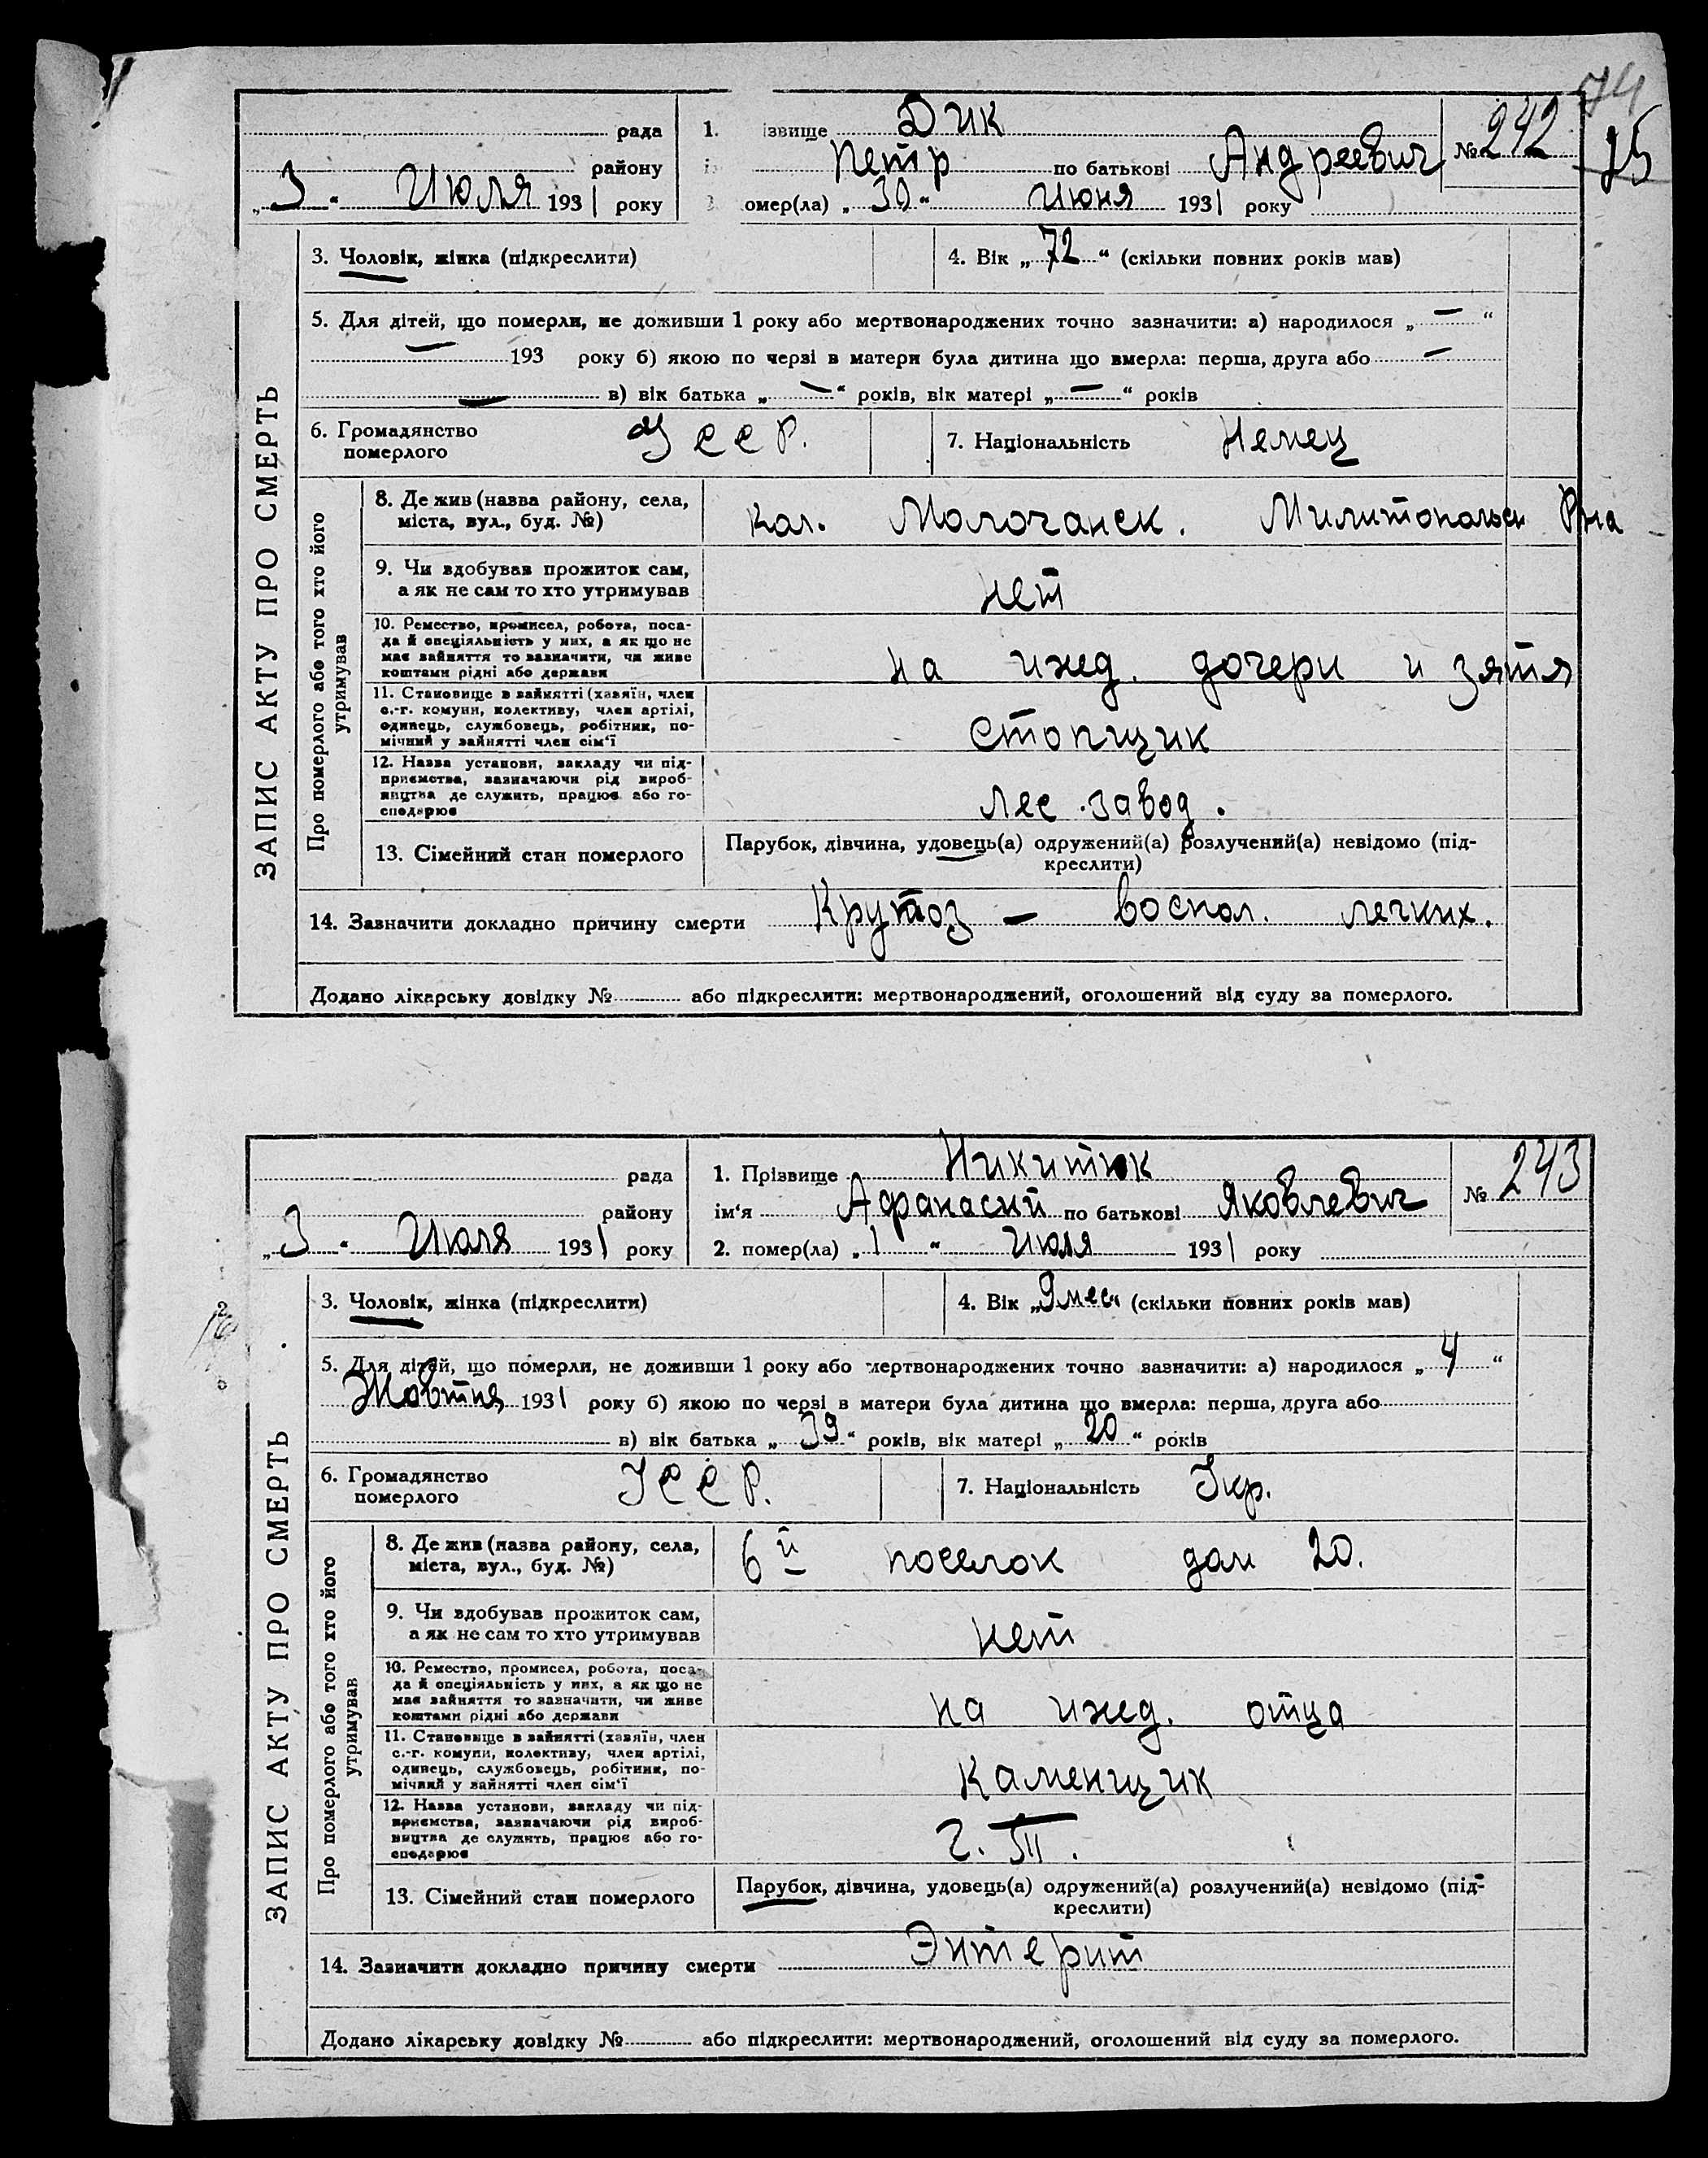 74
75
рада
району
„ 3 “ Июля 1931 року
1. ізвище Дик
Петр по батькові Андреевич
омер(ла) „ 30 “ Июня 1931 року
№ 242
ЗАПИС АКТУ ПРО СМЕРТЬ
3. Чоловік, жінка (підкреслити)
4. Вік „ 72 “ (скільки повних років мав)
5. Для дітей, що померли, не доживши 1 року або мертвонароджених точно зазначити: а) народилося „ — “
— 193 року б) якою по черзі в матери була дитина що вмерла: перша, друга або —
— в) вік батька „ — “ років, вік матері „ — “ років
6. Громадянство
померлого
УССР.
7. Національність Немец
Про померлого або того хто його
утримував
8. Де жив (назва району, села,
міста, вул., буд. №)
кол. Молочанск. Милитопольск Рна
9. Чи вдобував прожиток сам,
а як не сам то хто утримував
нет
10. Ремество, промисел, робота, поса-
да й спеціяльність у них, а як що не
має вайняття то вазначити, чи живе
коштами рідні або держави
на ижд. дочери и зятя
11. Становище в вайнятті (хавяїн, член
с.-г. комуни, колективу, член артілі,
одинець, службовець, робітник, по-
мічний у вайнятті член сім'ї
12. Назва установи, вакладу чи під-
приємства, вазначаючи рід вироб-
ництва де служить, працює або го-
сподарює
Лес. завод.
13. Сімейний стан померлого
Парубок, дівчина, удовець(а) одружений(а) розлучений(а) невідомо (під-
креслити)
14. Зазначити докладно причину смерти — воспол. легких.
Додано лікарську довідку № або підкреслити: мертвонароджений, оголошений від суду за померлого.
рада
району
„ 3 “ Июля 1931 року
1. Прізвище Никитюк
ім'я Афанасий по батькові Яковлевич
2. помер(ла) „ 1 “ Июля 1931 року
№ 243
ЗАПИС АКТУ ПРО СМЕРТЬ
3. Чоловік, жінка (підкреслити)
4. Вік „ 9 мес “ (скільки повних років мав)
5. Для дітей, що померли, не доживши 1 року або мертвонароджених точно вазначити: а) народилося „ 4 “
Жовтня 1931 року б) якою по черзі в матери була дитина що вмерла: перша, друга або
в) вік батька „ 39 “ років, вік матері „ 20 “ років
6. Громадянство
померлого
УССР.
7. Національність Укр.
Про померлого або того хто його
утримував
8. Де жив (назва району, села,
міста, вул., буд. №)
6й поселок дом 20.
9. Чи вдобував прожиток сам,
а як не сам то хто утримував
нет
10. Ремество, промисел, робота, поса-
да й спеціяльність у них, а як що не
має вайняття то вазначити, чи живе
коштами рідні або держави
на ижд. отца
11. Становище в вайнятті (хавяїн, член
с.-г. комуни, колективу, член артілі,
одинець, службовець, робітник, по-
мічний у вайнятті член сім'ї
каменщик
12. Назва установи, вакладу чи під-
приємства, вазначаючи рід вироб-
ництва де служить, працює або го-
сподарює
13. Сімейний стан померлого
Парубок, дівчина, удовець(а) одружений(а) розлучений(а) невідомо (під-
креслити)
14. Зазначити докладно причину смерти Энтерит
Додано лікарську довідку № або підкреслити: мертвонароджений, оголошений від суду за померлого.